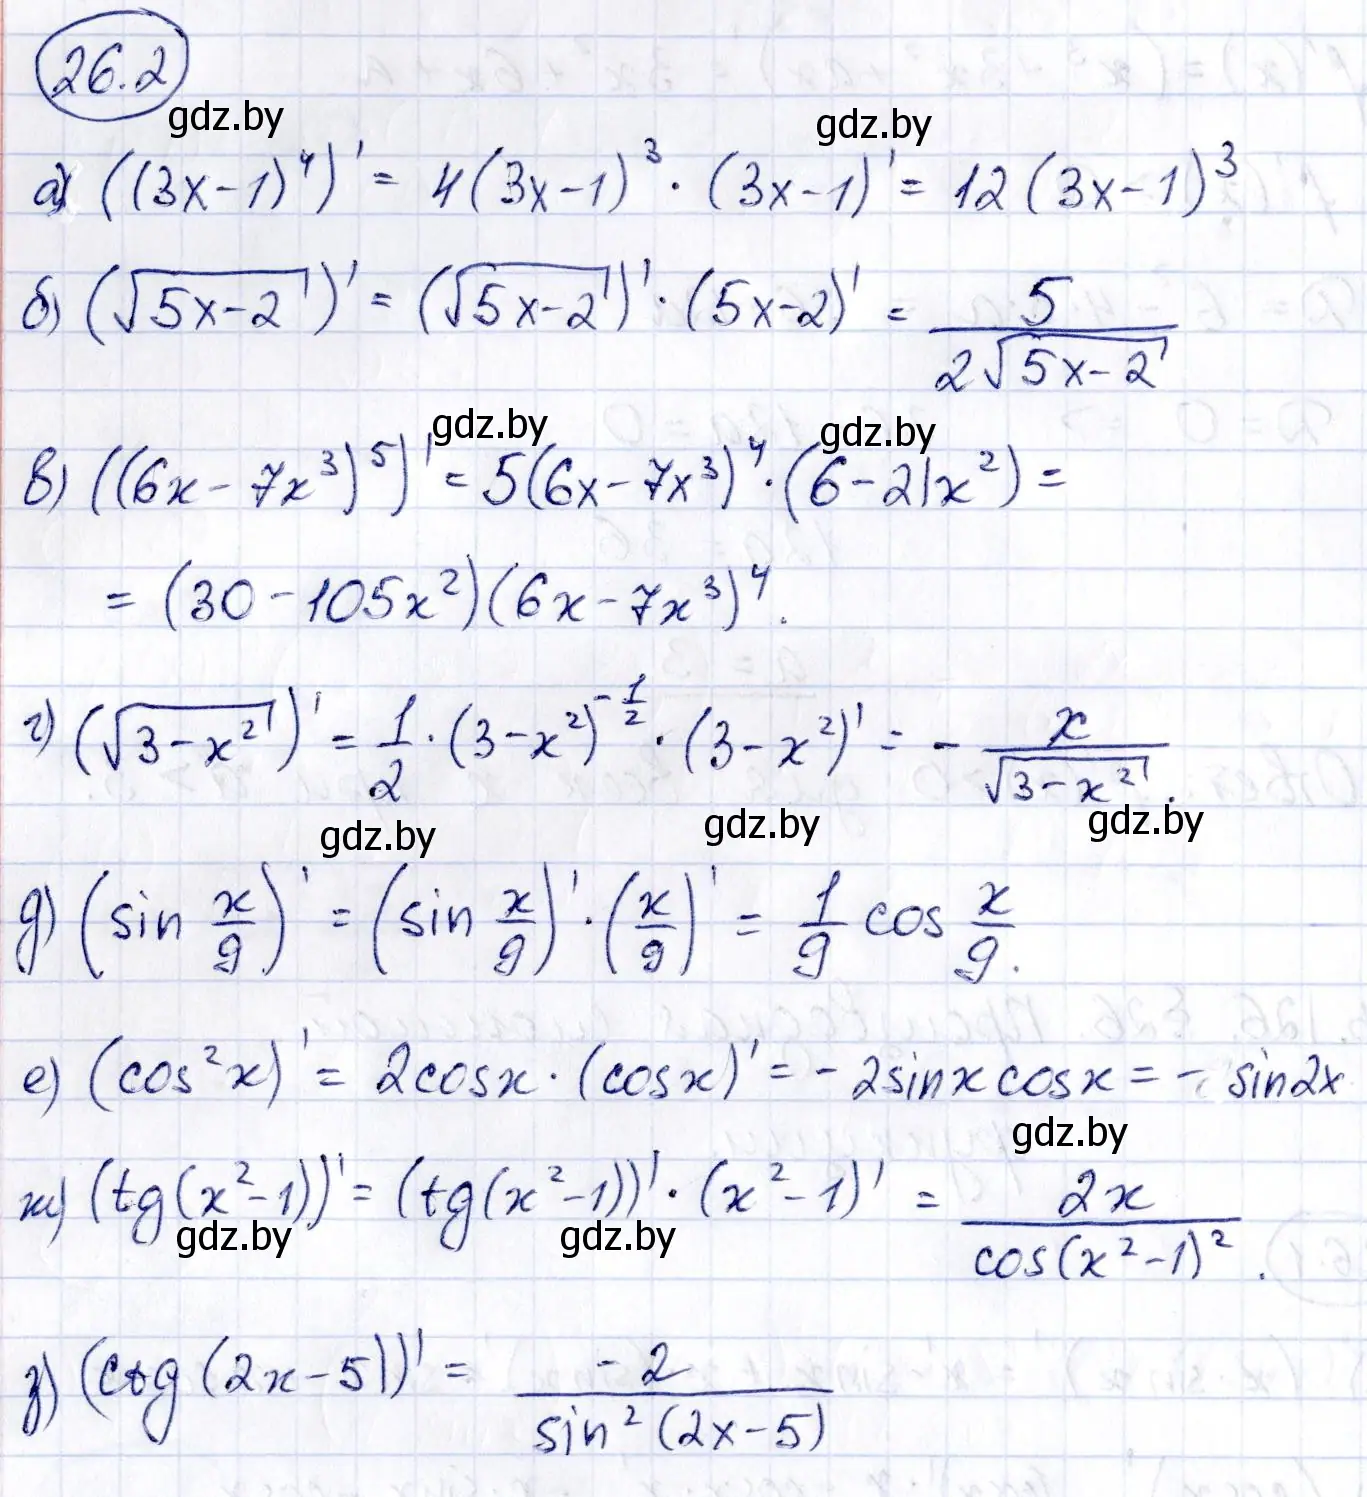 26.2
gdz.by gdz.by
а) ((3x-1)⁴)' = 4(3x-1)³·(3x-1)' = 12(3x-1)³
б) (√(5x-2))' = (√(5x-2))'·(5x-2)' = 5/(2√(5x-2))
gdz.by gdz.by
в) ((6x-7x³)⁵)' = 5(6x-7x³)⁴·(6-21x²) =
= (30-105x²)(6x-7x³)⁴.
г) (√(3-x²))' = 1/2·(3-x²)^(-1/2)·(3-x²)' = - x/√(3-x²).
gdz.by gdz.by gdz.by
д) (sin x/9)' = (sin x/9)'·(x/9)' = 1/9 cos x/9.
е) (cos²x)' = 2cosx·(cosx)' = -2sinxcosx = - sin2x
gdz.by
ж) (tg(x²-1))' = (tg(x²-1))'·(x²-1)' = 2x/cos(x²-1)².
gdz.by gdz.by
з) (ctg(2x-5))' = -2/sin²(2x-5)